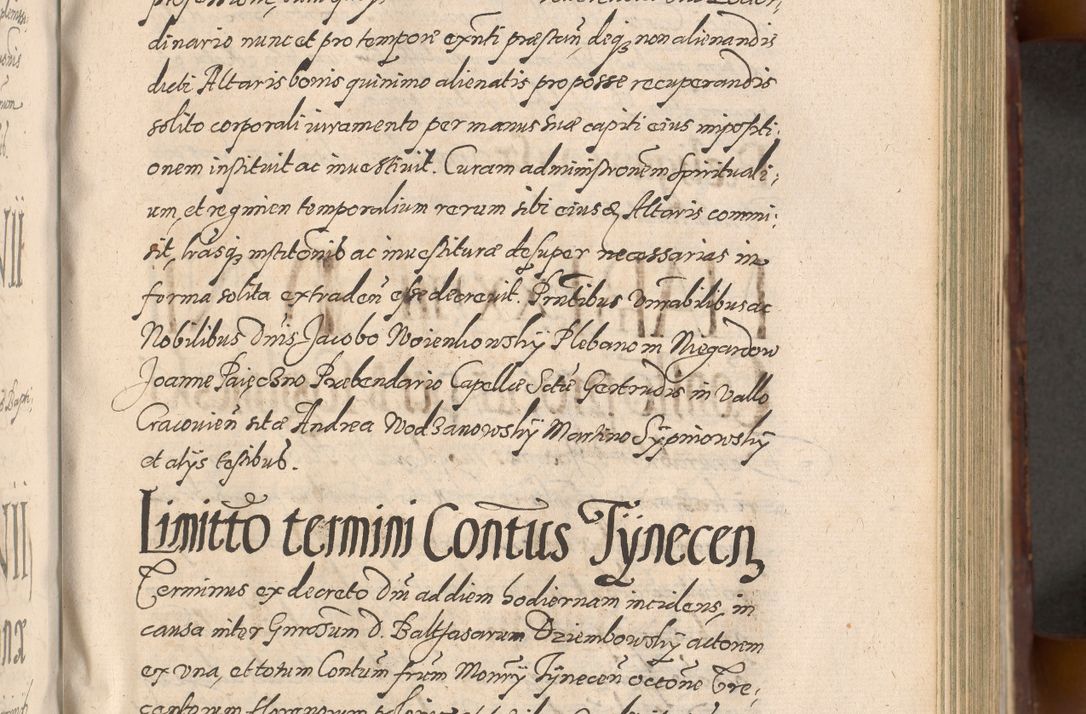 dinario nunc et pro tempore exñti præstañ deq₃ non alienandis
dicti Altaris bonis quinimo alienatis pro posse recuperandis
solito corporali iuramento per manus suæ capiti eius impositi,
onem instituit ac investivit. Curam administronem spirituali,
um, et regimen temporalium rerum sibi eiusq Altaris commi,
sit, lrasq₃ institonis ac investituræ desuper necessarias in
forma solita extradeñ esse decrevit. Pntibus vnrabilibus ac
Nobilibus Dnis Jacobo Woienkowsky Plebano in Niegardow
Joanne Paięczno Præbendario Capellæ Sctæ Gertrudis in Vallo
Cracovień sitæ Andrea Wodzanowsky Martino Sypniowsky
et alijs testibus.
Limitto termini Contus Tÿnecen
Terminus ex decreto Dni ad diem hodiernam incidens, in
causa inter Gnrosum D. Baltasarum Dziembowsky actorem
ex vna, et totum Contum frum Monrÿ Tÿneceñ octone Tre,
centorum florenorum